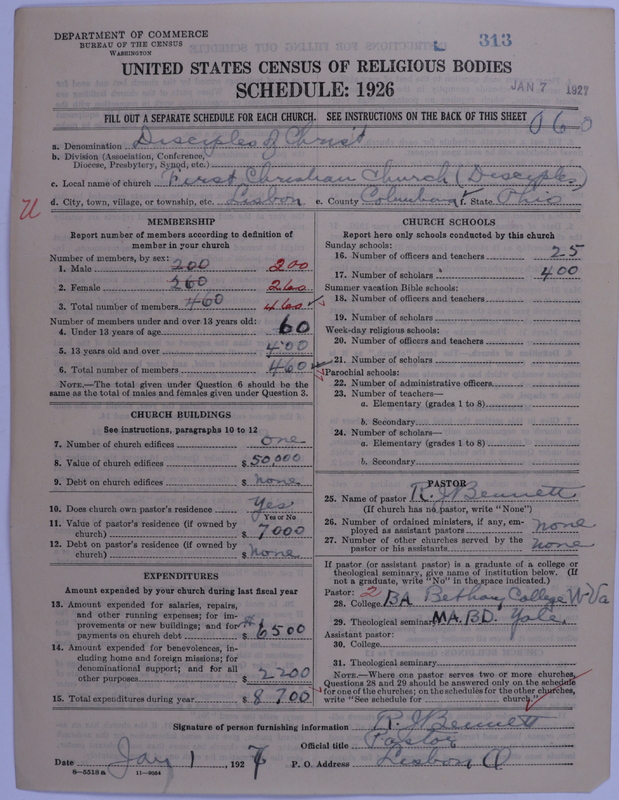 DEPARTMENT OF COMMERCE
BUREAU OF THE CENSUS
WASHINGTON
313
UNITED STATES CENSUS OF RELIGIOUS BODIES
SCHEDULE: 1926
JAN 7 1927
FILL OUT A SEPARATE SCHEDULE FOR EACH CHURCH. SEE INSTRUCTIONS ON THE BACK OF THIS SHEET
060
a. Denomination Disciples of Christ
b. Division (Association, Conference, Diocese, Presbytery, Synod, etc.)
c. Local name of church First Christian Church (Disciples)
d. City, town, village, or township, etc. Lisbon e. County Columbiana f. State Ohio
U
MEMBERSHIP
Report number of members according to definition of
member in your church
Number of members, by sex:
1. Male 200 200
2. Female 260 260
3. Total number of members 460 460
Number of members under and over 13 years old:
4. Under 13 years of age 60
5. 13 years old and over 400
6. Total number of members 460
NOTE.—The total given under Question 6 should be the
same as the total of males and females given under Question 3.
CHURCH BUILDINGS
See instructions, paragraphs 10 to 12
7. Number of church edifices one
8. Value of church edifices $ 50,000
9. Debt on church edifices $ none
10. Does church own pastor's residence Yes
Yes or No
11. Value of pastor's residence (if owned by
church) $ 7000
12. Debt on pastor's residence (if owned by
church) $ none
EXPENDITURES
Amount expended by your church during last fiscal year
13. Amount expended for salaries, repairs,
and other running expenses; for im-
provements or new buildings; and for
payments on church debt $ 6500
14. Amount expended for benevolences, in-
cluding home and foreign missions; for
denominational support; and for all
other purposes $ 2200
15. Total expenditures during year $ 8700
CHURCH SCHOOLS
Report here only schools conducted by this church
Sunday schools:
16. Number of officers and teachers 25
17. Number of scholars 400
Summer vacation Bible schools:
18. Number of officers and teachers
19. Number of scholars
Week-day religious schools:
20. Number of officers and teachers
21. Number of scholars
Parochial schools:
22. Number of administrative officers
23. Number of teachers—
a. Elementary (grades 1 to 8)
b. Secondary
24. Number of scholars—
a. Elementary (grades 1 to 8)
b. Secondary
PASTOR
25. Name of pastor R. J Bennett
(If church has no pastor, write "None")
26. Number of ordained ministers, if any, em-
ployed as assistant pastors none
27. Number of other churches served by the
pastor or his assistants none
If pastor (or assistant pastor) is a graduate of a college or
theological seminary, give name of institution below. (If
not a graduate, write "No" in the space indicated.)
Pastor: 2
28. College BA Bethany College W Va
29. Theological seminary MA. BD. Yale
Assistant pastor:
30. College
31. Theological seminary
NOTE.—Where one pastor serves two or more churches,
Questions 28 and 29 should be answered only on the schedule
for one of the churches; on the schedules for the other churches,
write "See schedule for church."
Signature of person furnishing information R. J Bennett
Official title Pastor
Date Jan 1, 1927 P. O. Address Lisbon O
8—5518 a 11—9054